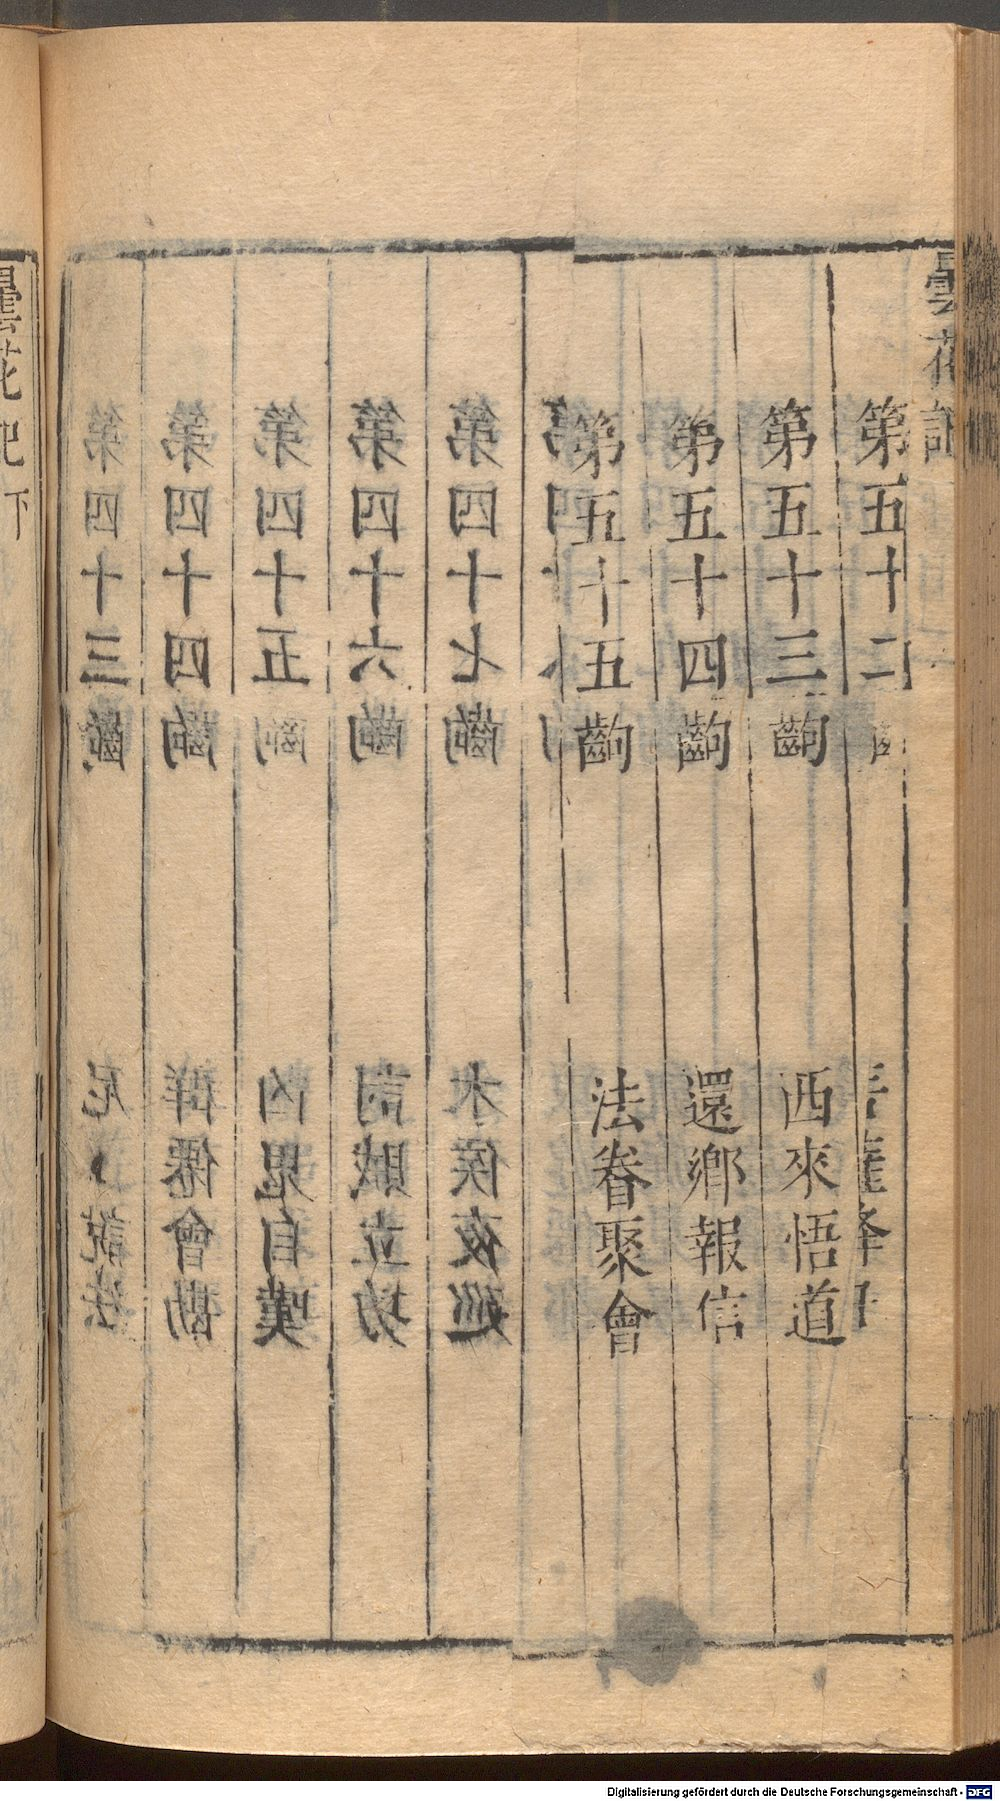 曇花記
第五十二齣　菩薩降凡
第五十三齣　西來悟道
第五十四齣　還鄉報信
第五十五齣　法眷聚會
第四十七齣　木侯夜巡
第四十六齣　討賊立功
第四十五齣　凶鬼自嘆
第四十四齣　群僊會勘
第四十三齣　說法
曇花記下
Digitalisierung gefördert durch die Deutsche Forschungsgemeinschaft - DFG